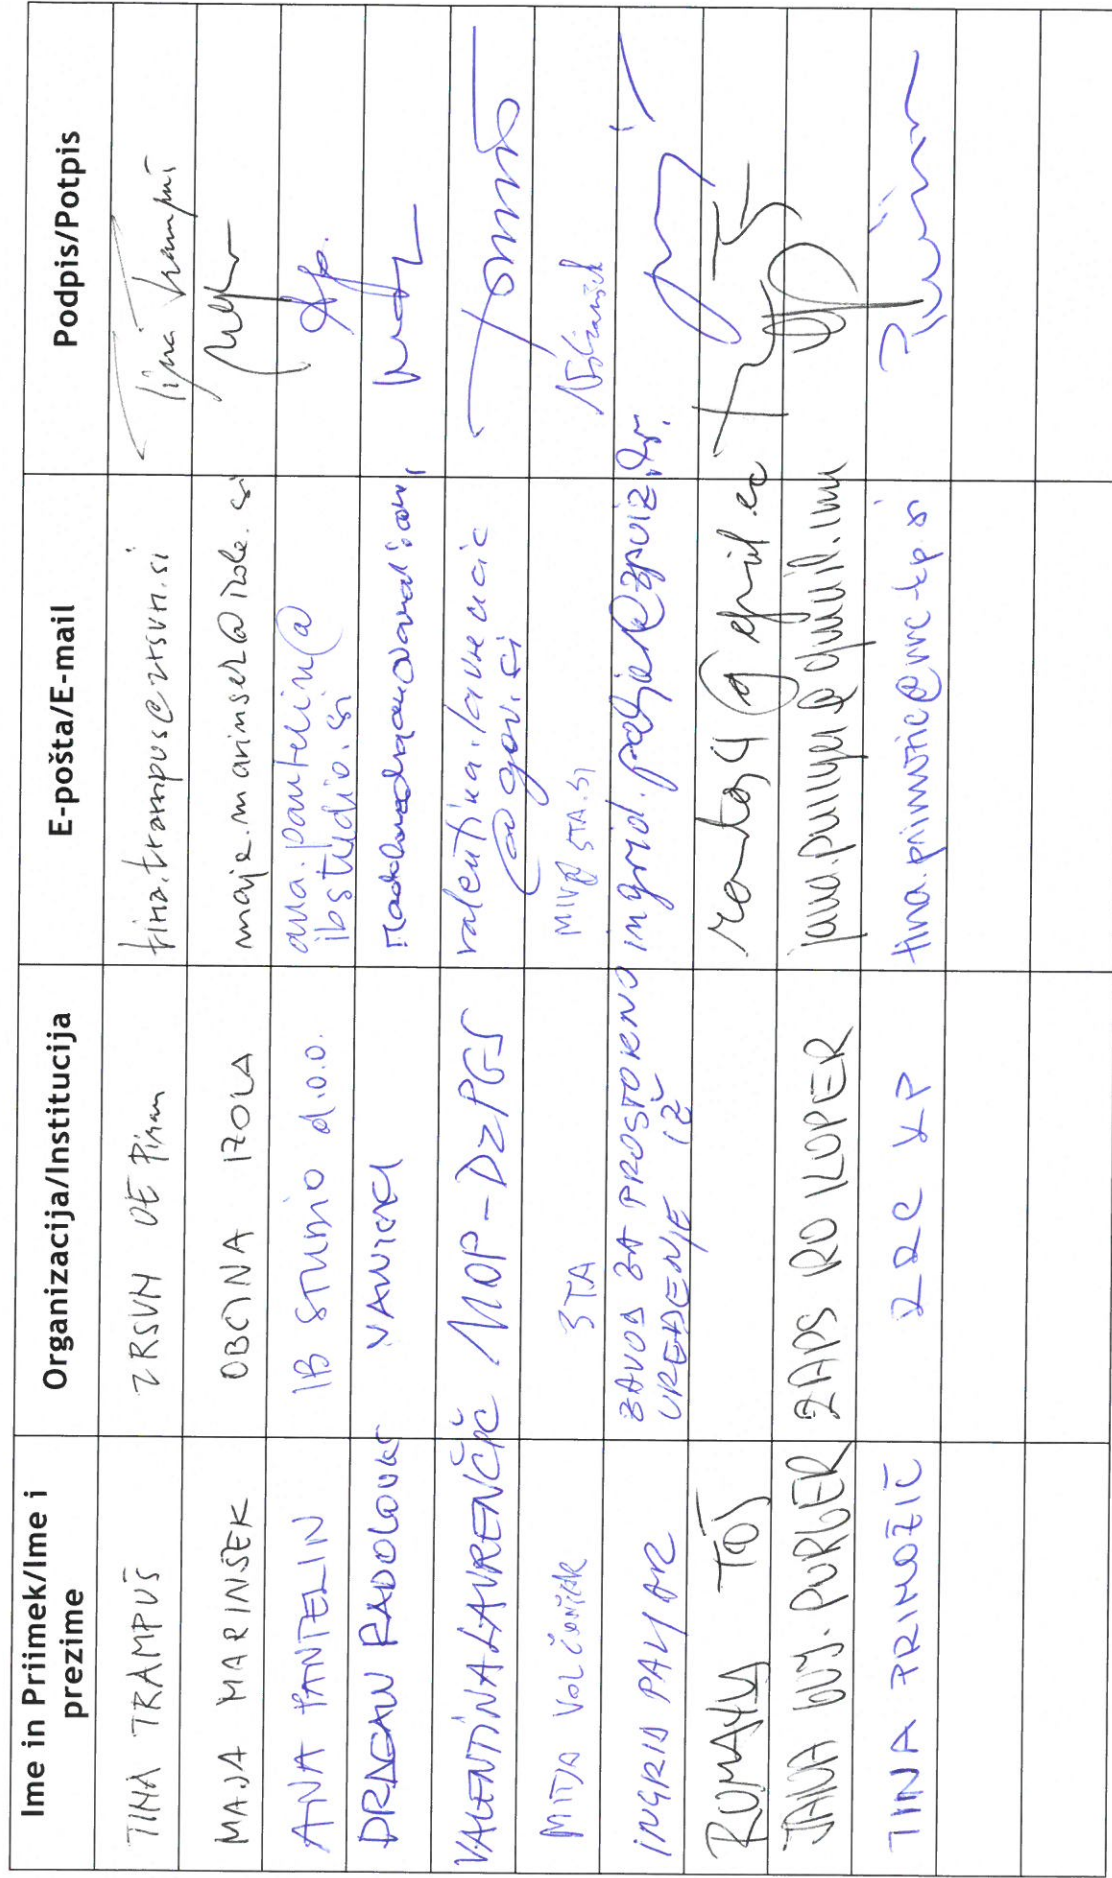 Ime in Priimek/Ime i prezime Organizacija/Institucija E-pošta/E-mail Podpis/Potpis
TINA TRAMPUŠ ZRSVN OE Piran tina.trampus@zrsvn.si Tina Trampuš
MAJA MARINŠEK OBČINA IZOLA maja.marinsek@izola.si
ANA PANTELIN IB STUDIO d.o.o. ana.pantelin@ibstudio.si
DRAGAN RADOLOVIĆ
VALENTINA LAVRENČIČ MOP-DZPGS valentina.lavrencic@gov.si
MITJA VOLČANŠEK STA MIV@STA.SI Volčanšek
INGRID PALJAR ZAVOD ZA PROSTORNO UREĐENJE IŽ ingrid.paljar@zpuiz.hr
TOŠ
JANA PURGER ZAPS RO KOPER
TINA PRIMOŽIČ RRC KP tina.primozic@rrc-kp.si